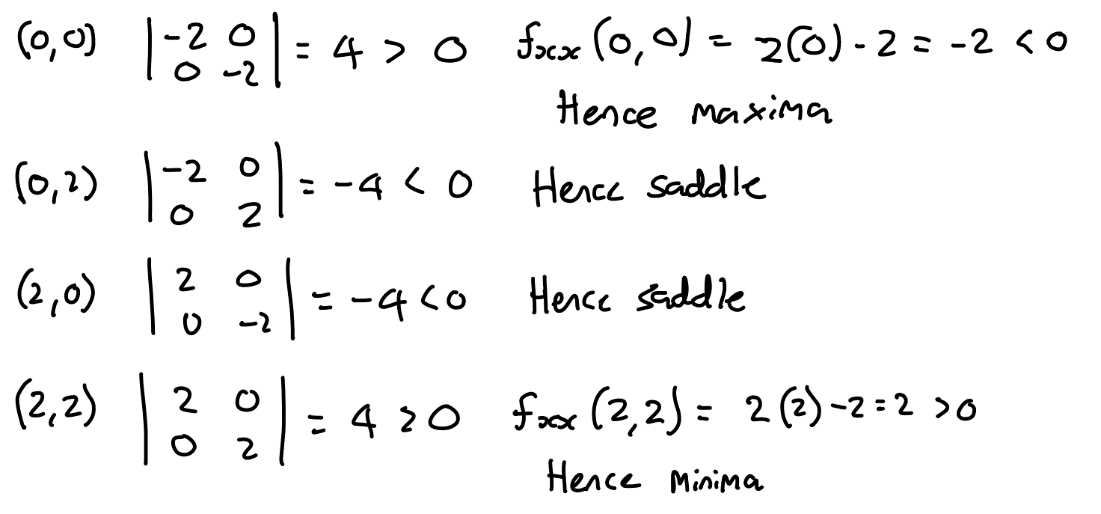 (0,0) |-2 0
0 -2| = 4 > 0 fxx (0,0) = 2(0) - 2 = -2 < 0
Hence maxima
(0,2) |-2 0
0 2| = -4 < 0 Hence saddle
(2,0) |2 0
0 -2| = -4 < 0 Hence saddle
(2,2) |2 0
0 2| = 4 > 0 fxx (2,2) = 2(2) - 2 = 2 > 0
Hence minima